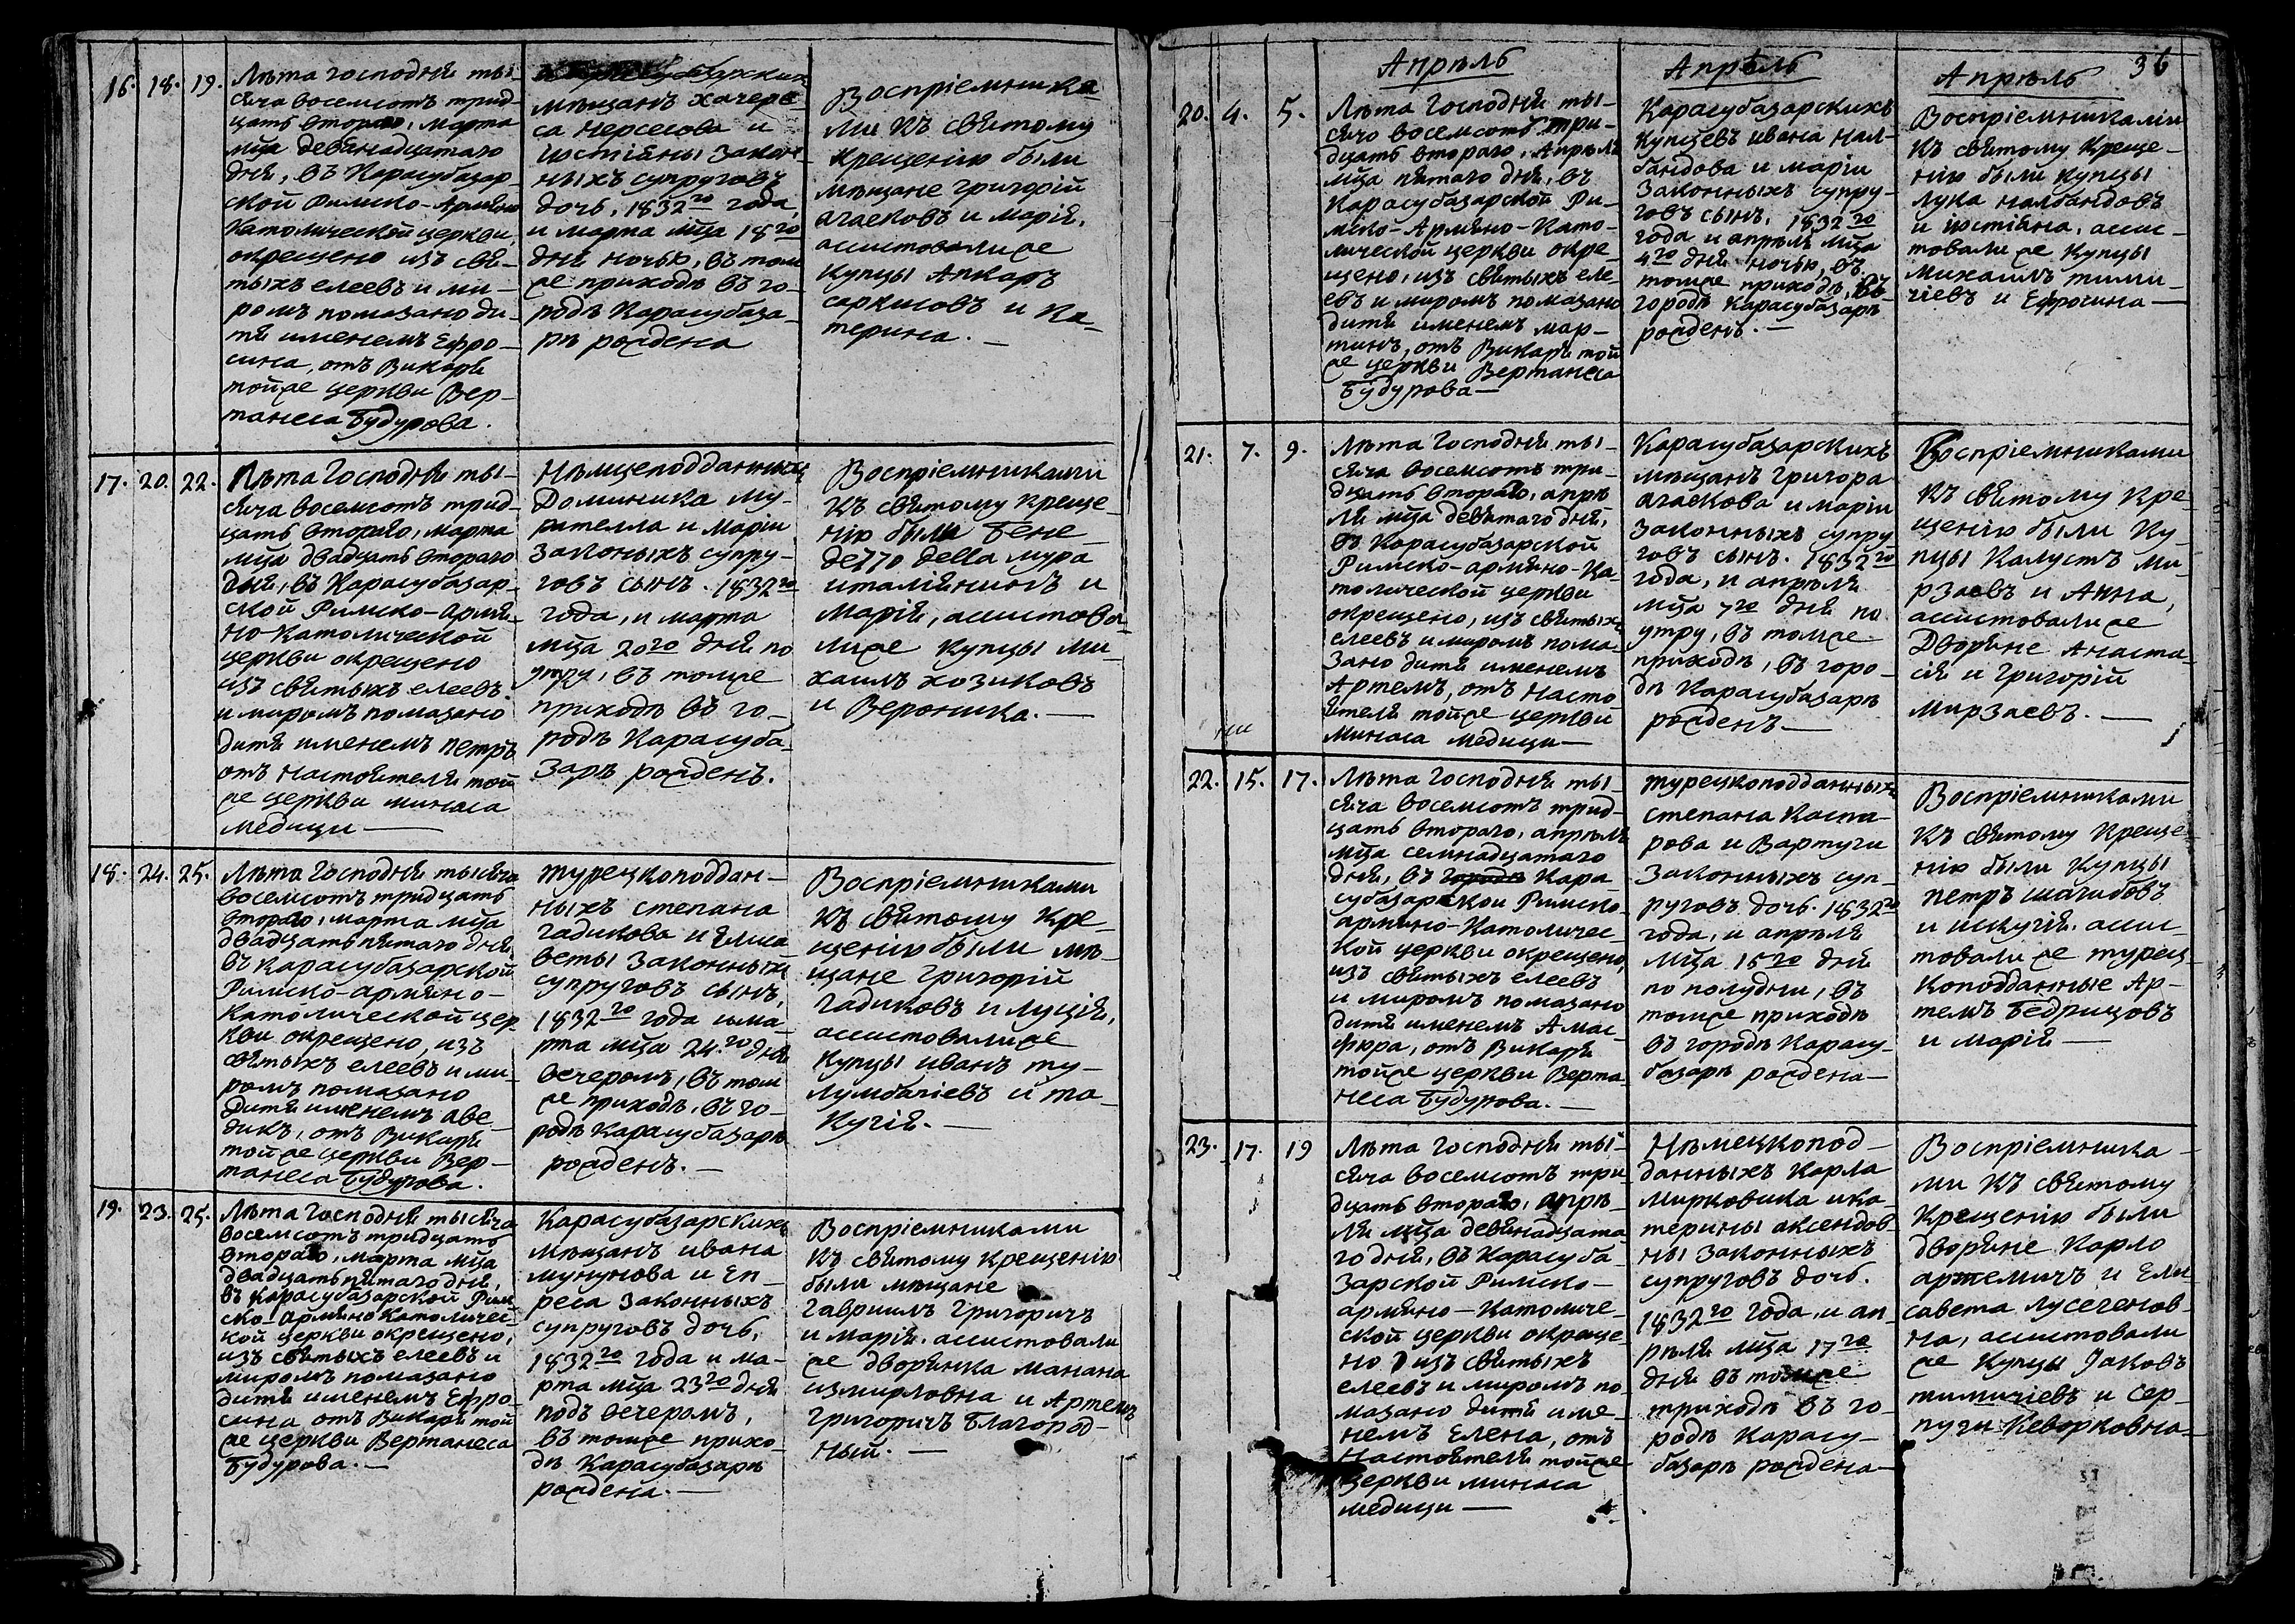 16. 18. 19.
Лѣта господня ты-
сяча восемсотъ трид-
цать втораго, марта
мца девянадцатаго
дня, въ Карасубазар-
ской Римско-Армяно
Католической церкви,
окрещено изъ свя-
тыхъ елеевъ и ми-
ромъ помазано ди-
тя именемъ Ефро-
сина, отъ Викаря
тойже церкви Вер-
танеса Будурова.
мѣщанъ хачере-
са нерсесова и
юстіяны закон-
ныхъ супруговъ
дочь, 1832го года,
и марта мца 18го
дня ночью, въ том
же приходѣ въ го-
родѣ Карасубаза-
рѣ рождена
Воспріемника-
ми къ святому
крещенію были
мѣщане григорій
агаековъ и марія,
ассистовали же
купцы Апкаръ
саркисовъ и Ка-
терина. —
17. 20. 22.
Лѣта Господня ты-
сяча восемсотъ трид-
цать втораго, марта
мца двадцать втораго
дня, въ Карасубазар-
ской Римско-армя-
но-католической
церкви окрещено
изъ святыхъ елеевъ
и миромъ помазано
дитя именемъ петръ
отъ настоятеля той
же церкви минаса
медици —
Нѣмцеподданныхъ
Доминика му-
рателла и маріи
законыхъ супру-
говъ сынъ. 1832го
года, и марта
мца 20го дня по
утру, въ томже
приходѣ въ го-
родѣ Карасуба-
зарѣ рожденъ.
Воспріемниками
къ святому креще-
нію были Бене
детто della мура
италіянинъ и
марія, ассистова-
лиже купцы ми-
хаилъ хозиковъ
и Вероника. —
18. 24. 25.
Лѣта Господня тысяча
восемсотъ тридцать
втораго, марта мца
двадцать пятаго дня
въ карасубазарской
Римско-армяно-
католической цер
кви окрещено, изъ
святыхъ елеевъ и ми-
ромъ помазано
дитя именемъ аве-
дикъ, отъ Викаря
тойже церкви Вер-
танеса Будурова.
турецкоподдан-
ныхъ степана
гадикова и Елиса
веты законныхъ
супруговъ сынъ,
1832го года и ма-
рта мца 24.го дня
вечеромъ, въ том
же приходѣ, въ го-
родѣ карасубазарѣ
рожденъ. —
Воспріемниками
къ святому кре-
щенію были мѣ-
щане григорій
гадиковъ и луція,
ассистовалиже
купцы иванъ ту-
лумбагіевъ и та-
кугія. —
19. 23. 25.
Лѣта Господня тысяча
восемсотъ тридцать
втораго, марта мца
двадцать пятаго дня,
въ карасубазарской Рим-
ско-армяно католичес-
кой церкви окрещено,
изъ святыхъ елеевъ и
миромъ помазано
дитя именемъ Ефро-
сина отъ Викаря той
же церкви Вертанеса
Будурова. —
Карасубазарскихъ
мѣщанъ ивана
мунунова и Еп-
реса законныхъ
супруговъ дочь,
1832го года и ма-
рта мца 23го дня
подъ вечеромъ,
въ томже прихо-
дѣ карасубазарѣ
рождена. —
Воспріемниками
къ святому крещенію
были мѣщане
гавриилъ григоричъ
и марія, ассистовали
же дворянка манана
измирловна и Артемъ
григоричъ благород-
ный. —
36
Апрѣль
Апрѣль
Апрѣль
20. 4. 5.
Лѣта Господня ты-
сяча восемсотъ три-
дцать втораго, Апрѣля
мца пятаго дня, въ
Карасубазарской Ри-
мско-Армяно-Като-
лической церкви окре-
щено, изъ святыхъ еле-
евъ и миромъ помазано
дитя именемъ мар-
тинъ, отъ Викаря той
же церкви Вертанеса
Будурова —
Карасубазарскихъ
купцевъ ивана нал-
бандова и маріи
законныхъ супру-
говъ сынъ, 1832го
года и апрѣля мца
4го дня ночью, въ
томже приходѣ, въ
городѣ карасубазарѣ
рожденъ. —
Воспріемниками
къ святому креще-
нію были купцы
лука налбандовъ
и юстіяна, ассис-
товали же купцы
михаилъ тими-
гіевъ и Ефросина —
21. 7. 9.
Лѣта Господня ты-
сяча восемсотъ три-
дцать втораго, апрѣ
ля мца девятаго дня,
въ Карасубазарской
Римско-армяно-Ка-
толической церкви
окрещено, изъ святыхъ
елеевъ и миромъ пома-
зано дитя именемъ
Артемъ, отъ насто
ятеля тойже церкви
минаса медици —
Карасубазарскихъ
мѣщанъ григора
агаекова и маріи
законныхъ супру
говъ сынъ. 1832го
года, и апрѣля
мца 7го дня по
утру, въ томже
приходѣ, въ горо-
дѣ Карасубазарѣ
рожденъ —
Воспріемниками
къ святому кре-
щенію были ку-
пцы Калустъ ми-
рзаевъ и Анна,
ассистовалиже
Дворяне Анаста-
сія и григорій
мирзаевъ. —
22. 15. 17.
Лѣта Господня ты-
сяча восемсотъ трид-
цать втораго, апрѣля
мца семнадцатаго
дня, въ городѣ Кара
субазарской Римско-
армяно-Католичес-
кой церкви окрещено,
изъ святыхъ елеевъ
и миромъ помазано
дитя именемъ Амас-
фюра, отъ Викаря
тойже церкви Верта-
неса Будурова. —
турецкоподданныхъ
степана Каспа-
рова и Вартуги
законныхъ суп-
руговъ дочь. 1832го
года, и апрѣля
мца 15го дня
по полудни, въ
томже приходѣ
въ городѣ Карасу-
базарѣ рождена —
Воспріемниками
къ святому креще-
нію были купцы
петръ шагабовъ
и искугія, ассис-
товали же турец-
коподданные Ар-
темъ Бедрицовъ
и марія —
23. 17. 19
Лѣта Господня ты-
сяча восемсотъ три
дцать втораго, апрѣ-
ля мца девянадцата
го дня, въ Карасуба-
зарской Римско-
армяно-Католиче-
ской церкви окреще-
но изъ святыхъ
елеевъ и миромъ по-
мазано дитя име-
немъ Елена, отъ
Настоятеля тойже
церкви минаса
медици —
Нѣмецкопод-
данныхъ Карла
мирковика и ка-
терины аксендов
ны законныхъ
супруговъ дочь.
1832го года, и ап-
рѣля мца 17го
дня въ томже
приходѣ въ го-
родѣ Карасу-
базарѣ рождена —
Воспріемника-
ми къ святому
крещенію были
дворяне Карло
артемичъ и Ели-
савета лусегенов-
на, ассистовали
же купцы Јаковъ
тимичіевъ и сер-
пуги Кеворковна —